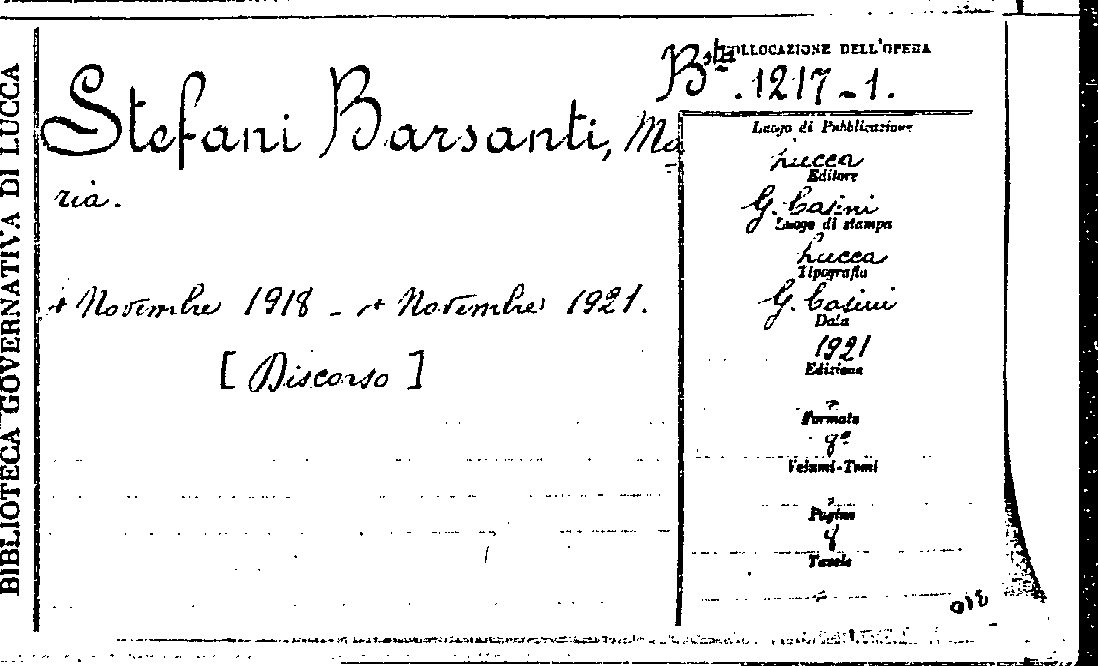 BIBLIOTECA GOVERNATIVA DI LUCCA
Stefani Barsanti, Ma
ria.
4 Novembre 1918 - 4 Novembre 1921.
[Discorso]
COLLOCAZIONE DELL'OPERA
Bta. 1217-1.
Luogo di Pubblicazione
Lucca
Editore
G. Casini
Luogo di stampa
Lucca
Tipografia
G. Casini
Data
1921
Edizione
Formato
8°
Volumi-Tomi
Pagine
8
Tavole